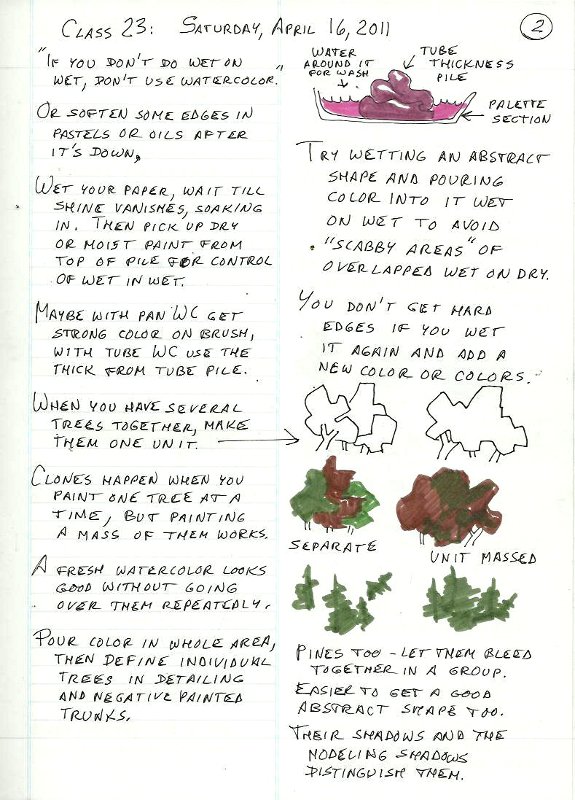 Class 23: Saturday, April 16, 2011
2
"If you don't do wet on
wet, don't use watercolor."
Or soften some edges in
pastels or oils after
it's down.
Wet your paper, wait till
shine vanishes, soaking
in. Then pick up dry
or moist paint from
top of pile for control
of wet in wet.
Maybe with pan WC get
strong color on brush,
with tube WC use the
thick from tube pile.
When you have several
trees together, make
them one unit.
Clones happen when you
paint one tree at a
time, but painting
a mass of them works.
A fresh watercolor looks
good without going
over them repeatedly.
Pour color in whole area,
then define individual
trees in detailing
and negative painted
trunks.
Water
around it
for wash
Tube
thickness
pile
Palette
section
Try wetting an abstract
shape and pouring
color into it wet
on wet to avoid
"scabby areas" of
overlapped wet on dry.
You don't get hard
edges if you wet
it again and add a
new color or colors.
Separate
Unit massed
Pines too - let them bleed
together in a group.
Easier to get a good
abstract shape too.
Their shadows and the
modeling shadows
distinguish them.